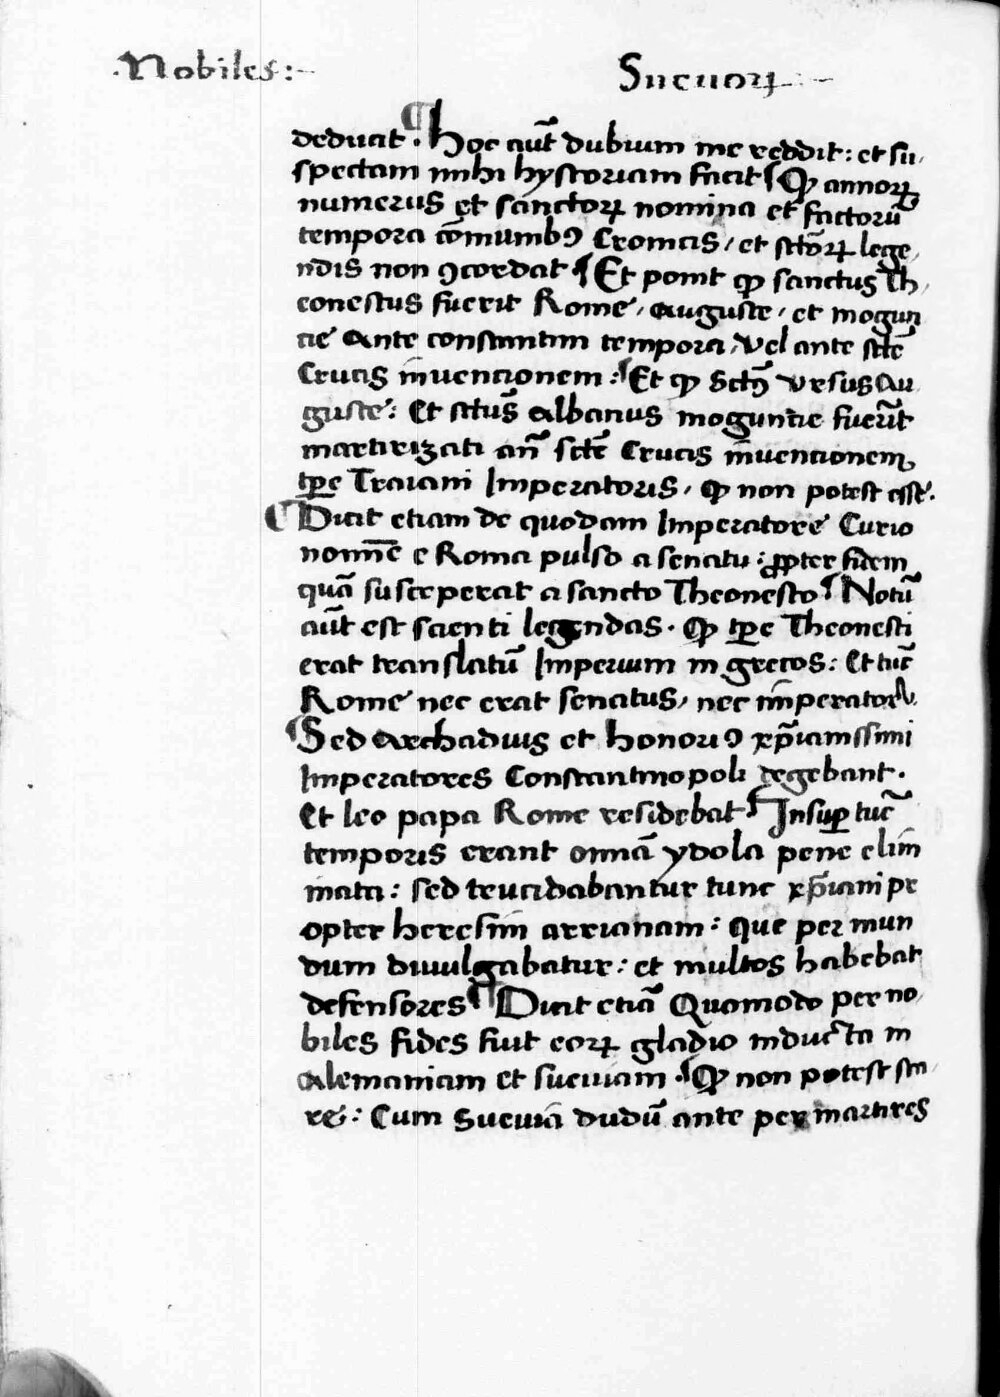 .Nobiles:~ Sueuoꝝ
deducit. ¶ Hoc aut̃ dubium me reddit: et su,
spectam mihi hystoriam facit ¶ Qꝫ annoꝝ
numerus et sanctoꝝ nomina et factorũ
tempora cõmunibꝰ Cronicis, et sc̃toꝝ lege,
ndis non ꝯcordat ¶ Et ponit qꝫ sanctus Th,
eonestus fuerit Rome, auguste, et mogun
cie Ante constantini tempora, vel ante sc̃te
Crucis inuencionem: ¶ Et qꝫ Sc̃tꝰ vrsus Au
guste: Et sc̃tus albanus moguncie fuerĩt
martirizati añ sc̃te Crucis inuencionem,
tp̃re Traiani Imperatoris, qꝫ non potest esse.
¶ Dicit etiam de quodam Imperatore Curio
nomĩe e Roma pulso a senatu: ꝓpter fidem
quã susceperat a sancto Theonesto ¶ Notũ
aut̃ est scienti legendas. Qꝫ tp̃re Theonesti
erat translatũ Imperium in grecos: Et tũc
Rome nec erat senatus, nec imperator.
¶ Sed Archadius et honoriꝰ xp̃ianissimi
Imperatores Constantinopoli degebant.
Et leo papa Rome residebat ¶ Insuꝑ tũc
temporis erant omniã ydola pene elim
inata: sed trucidabantur tunc xp̃iani pr
opter heresim arrianam: que per mun
dum diuulgabatur: et multos habebat
defensores ¶ Dicit etiã Quomodo per no,
biles fides fuit eoꝝ gladio inducta in
Alemaniam et sueuiam. ¶ Qꝫ non potest sta,
re: Cum Sueuiã dudũ ante per martires